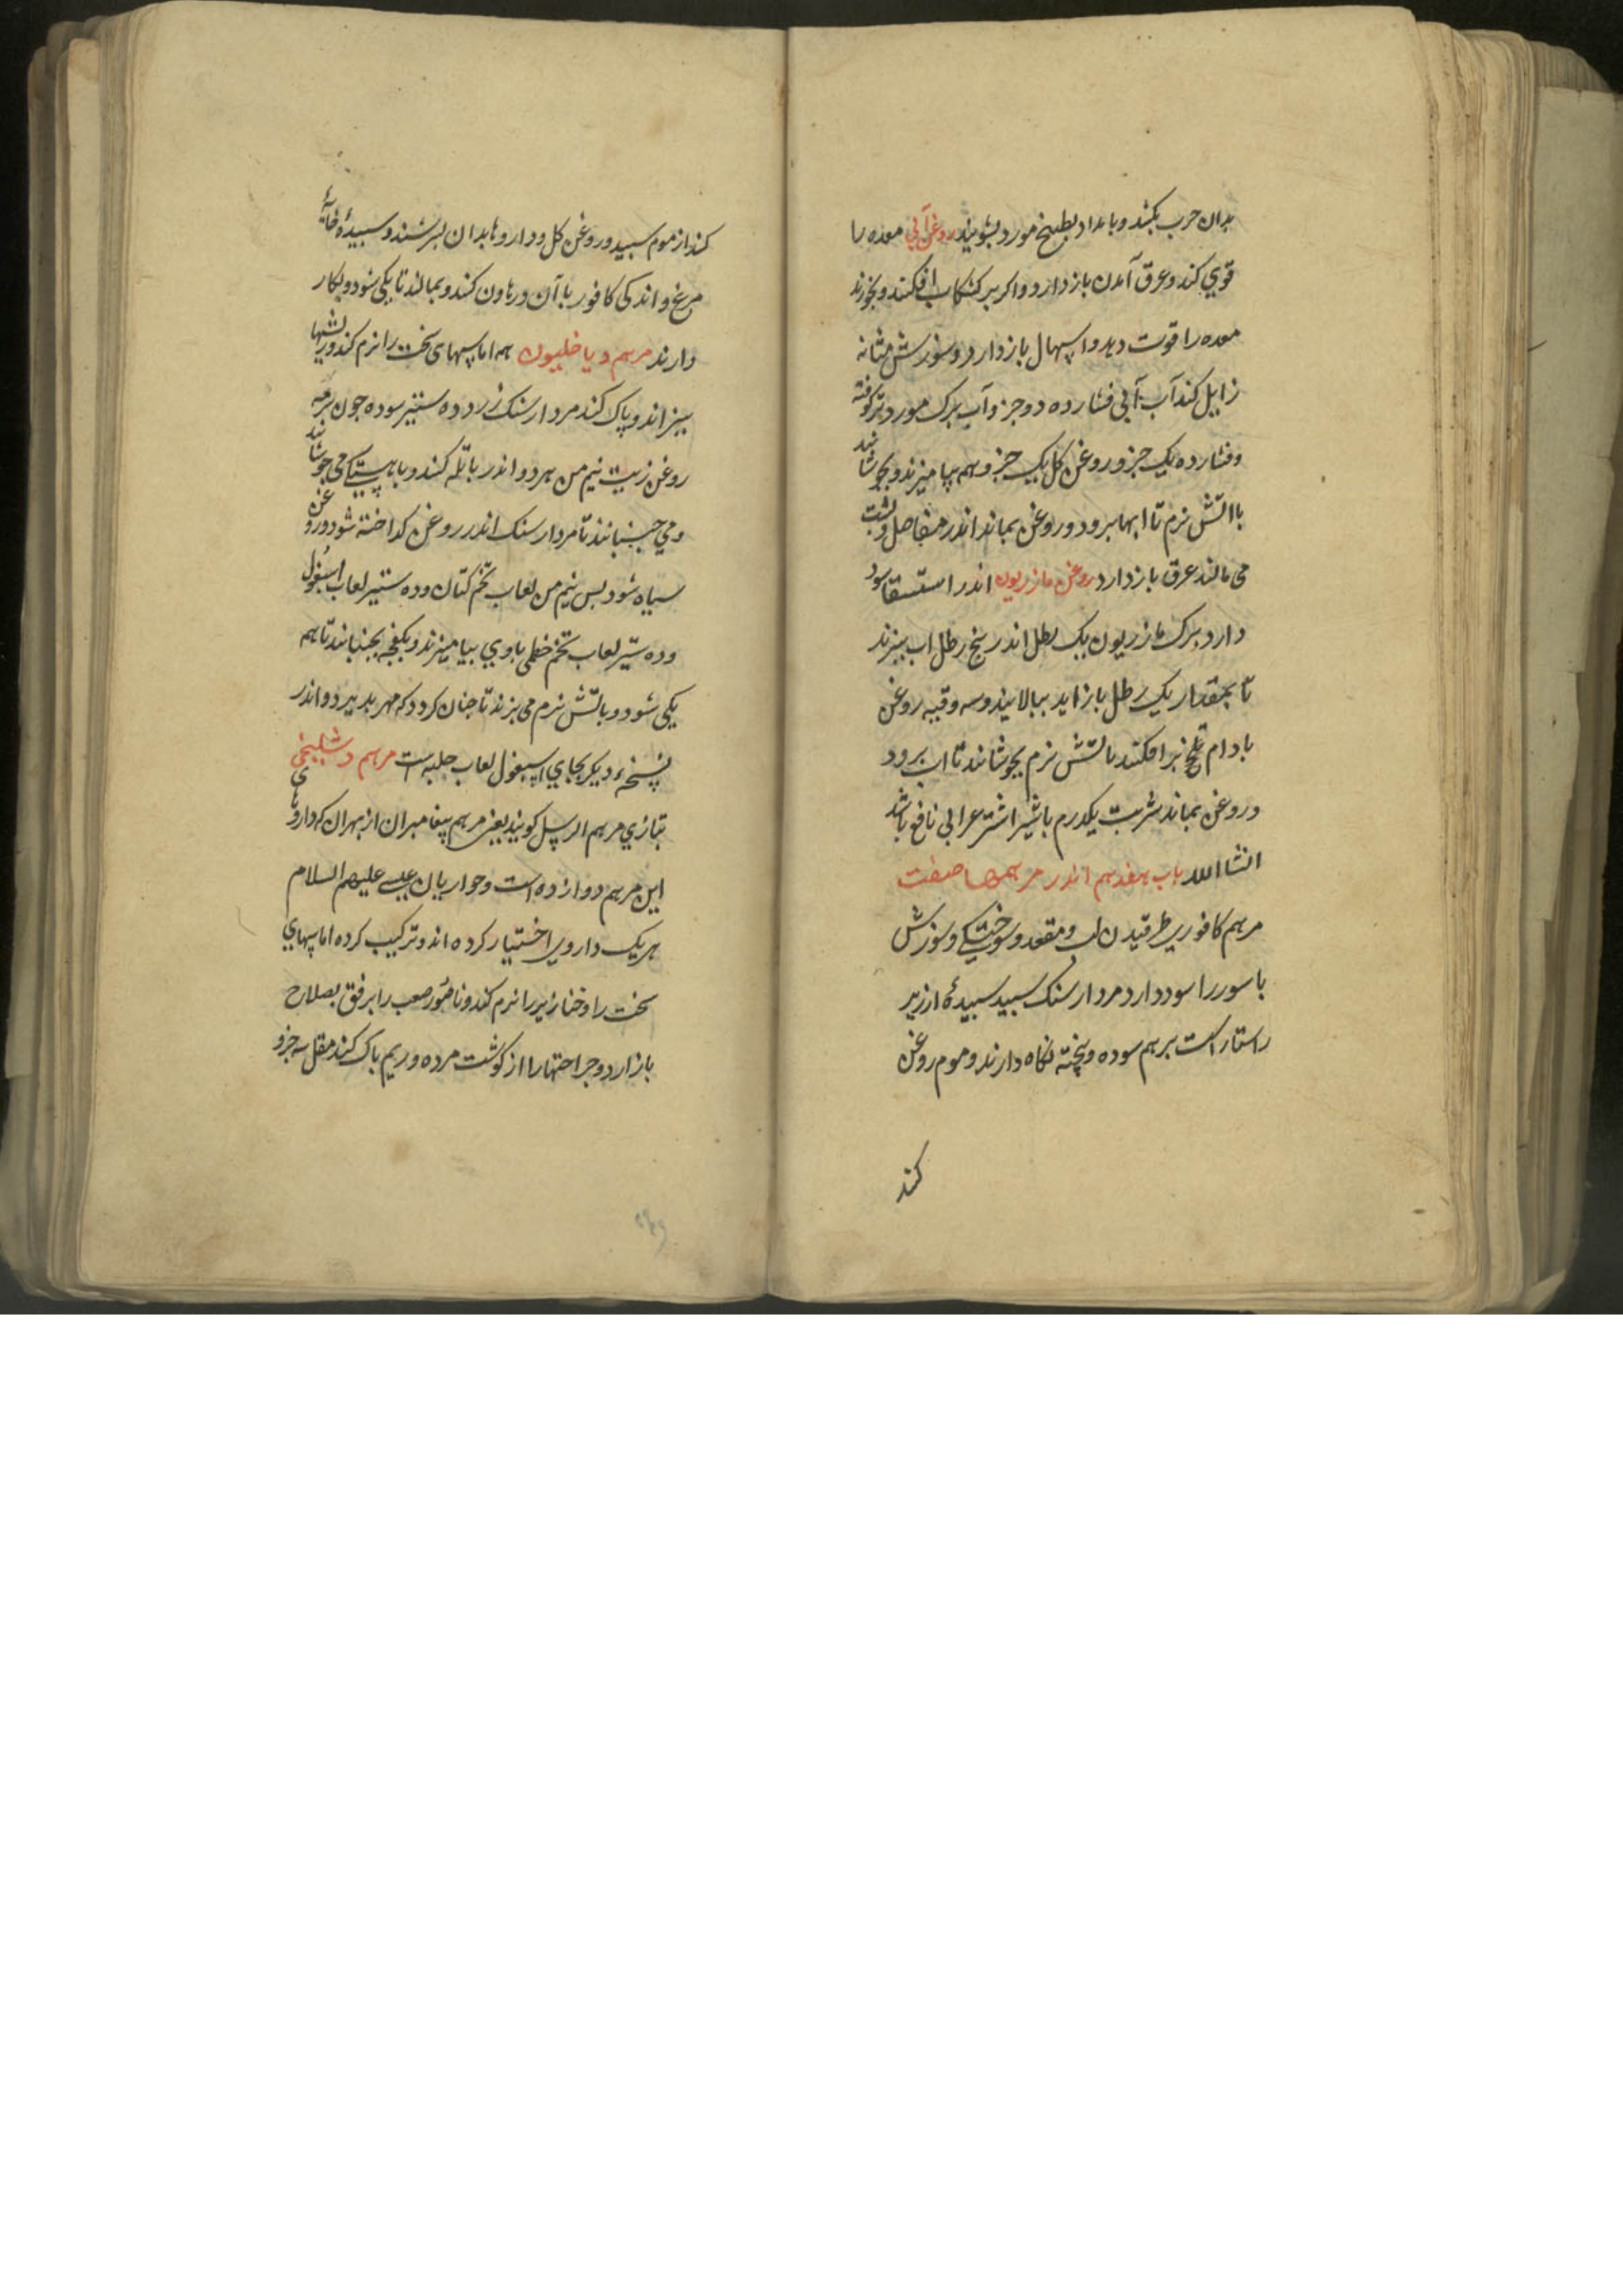 بدان حرب بکند و بامداد بطبیخ مورد بشویند روغن آبی معده را
قوي کند و عرق آمدن باز دارد و اکر بر کشکاب افکنند و بخورند
معده را قوت دهد و اسهال باز دارد و سوزش مثانه
زایل کند آب آبی فشارده دو جزو آب برک مورد تر کوفته
و فشارده یک جزو روغن کل یک جزو بهم بیامیزند و بجوشانند
با اتش نرم تا ابها برود و روغن بماند اندر مفاصل و پشت
می مالند عرق باز دارد روغن مازریون اندر استسقا سود
دارد برک مازریون یک رطل اندر پنج رطل اب بپزند
تا بمقدار یک رطل باز اید بپالایند و سه وقیه روغن
بادام تلخ برافکنند باتش نرم بجوشانند تا اب برود
و روغن بماند شربت یکدرم با شیر اشتر عرابی نافع باشد
انشاالله باب هفدهم اندر مرهمها صفت
مرهم کافوري طرقیدن لب و مقعد و سوختکی و سوزش
باسور را سود دارد مردارسنک سپید سپیدۀ ارزیر
راستاراست بر هم سوده و پخته نکاه دارند و موم روغن
کند
کند از موم سپید و روغن کل و داروها بدان بسرشند و سپیدۀ خایۀ
مرغ و اندکی کافور با آن در هاون کنند و بمالند تا یکی شود و بکار
دارند مرهم دیاخلیون همه اماسهای سخت را نرم کند و ریشها
بپزاند و پاک کند مردارسنک زرد ده ستیر سوده جون سرمه
روغن زیت نیم من هر دو اندر باتله کنند و باهستکی می جوشانند
و می جنبانند تا مردارسنک اندر روغن کداخته شود و روغن
سیاه شود بس نیم من لعاب تخم کتان و ده ستیر لعاب اسبغول
و ده ستیر لعاب تخم خطمی باوي بیامیزند و بکفجه بجنبانند تا هم
یکی شود و باتش نرم می بزند تا جنان کردد که مهر بدیرد و اندر
نسخۀ دیکر بجاي اسبغول لعاب حلبه است مرهم دشلیخی
بتازي مرهم الرسل کویند یعنی مرهم پیغامبران از بهر ان که داروهای
این مرهم دوازده است و حواریان عیسی علیهم السلام
هر یک دارویی اختیار کرده اند و ترکیب کرده اماسهاي
سخت را و خنازیر را نرم کند و ناصور صعب را برفق بصلاح
باز ارد و جراحتها را از کوشت مرده و ریم باک کند مقل سه جزو